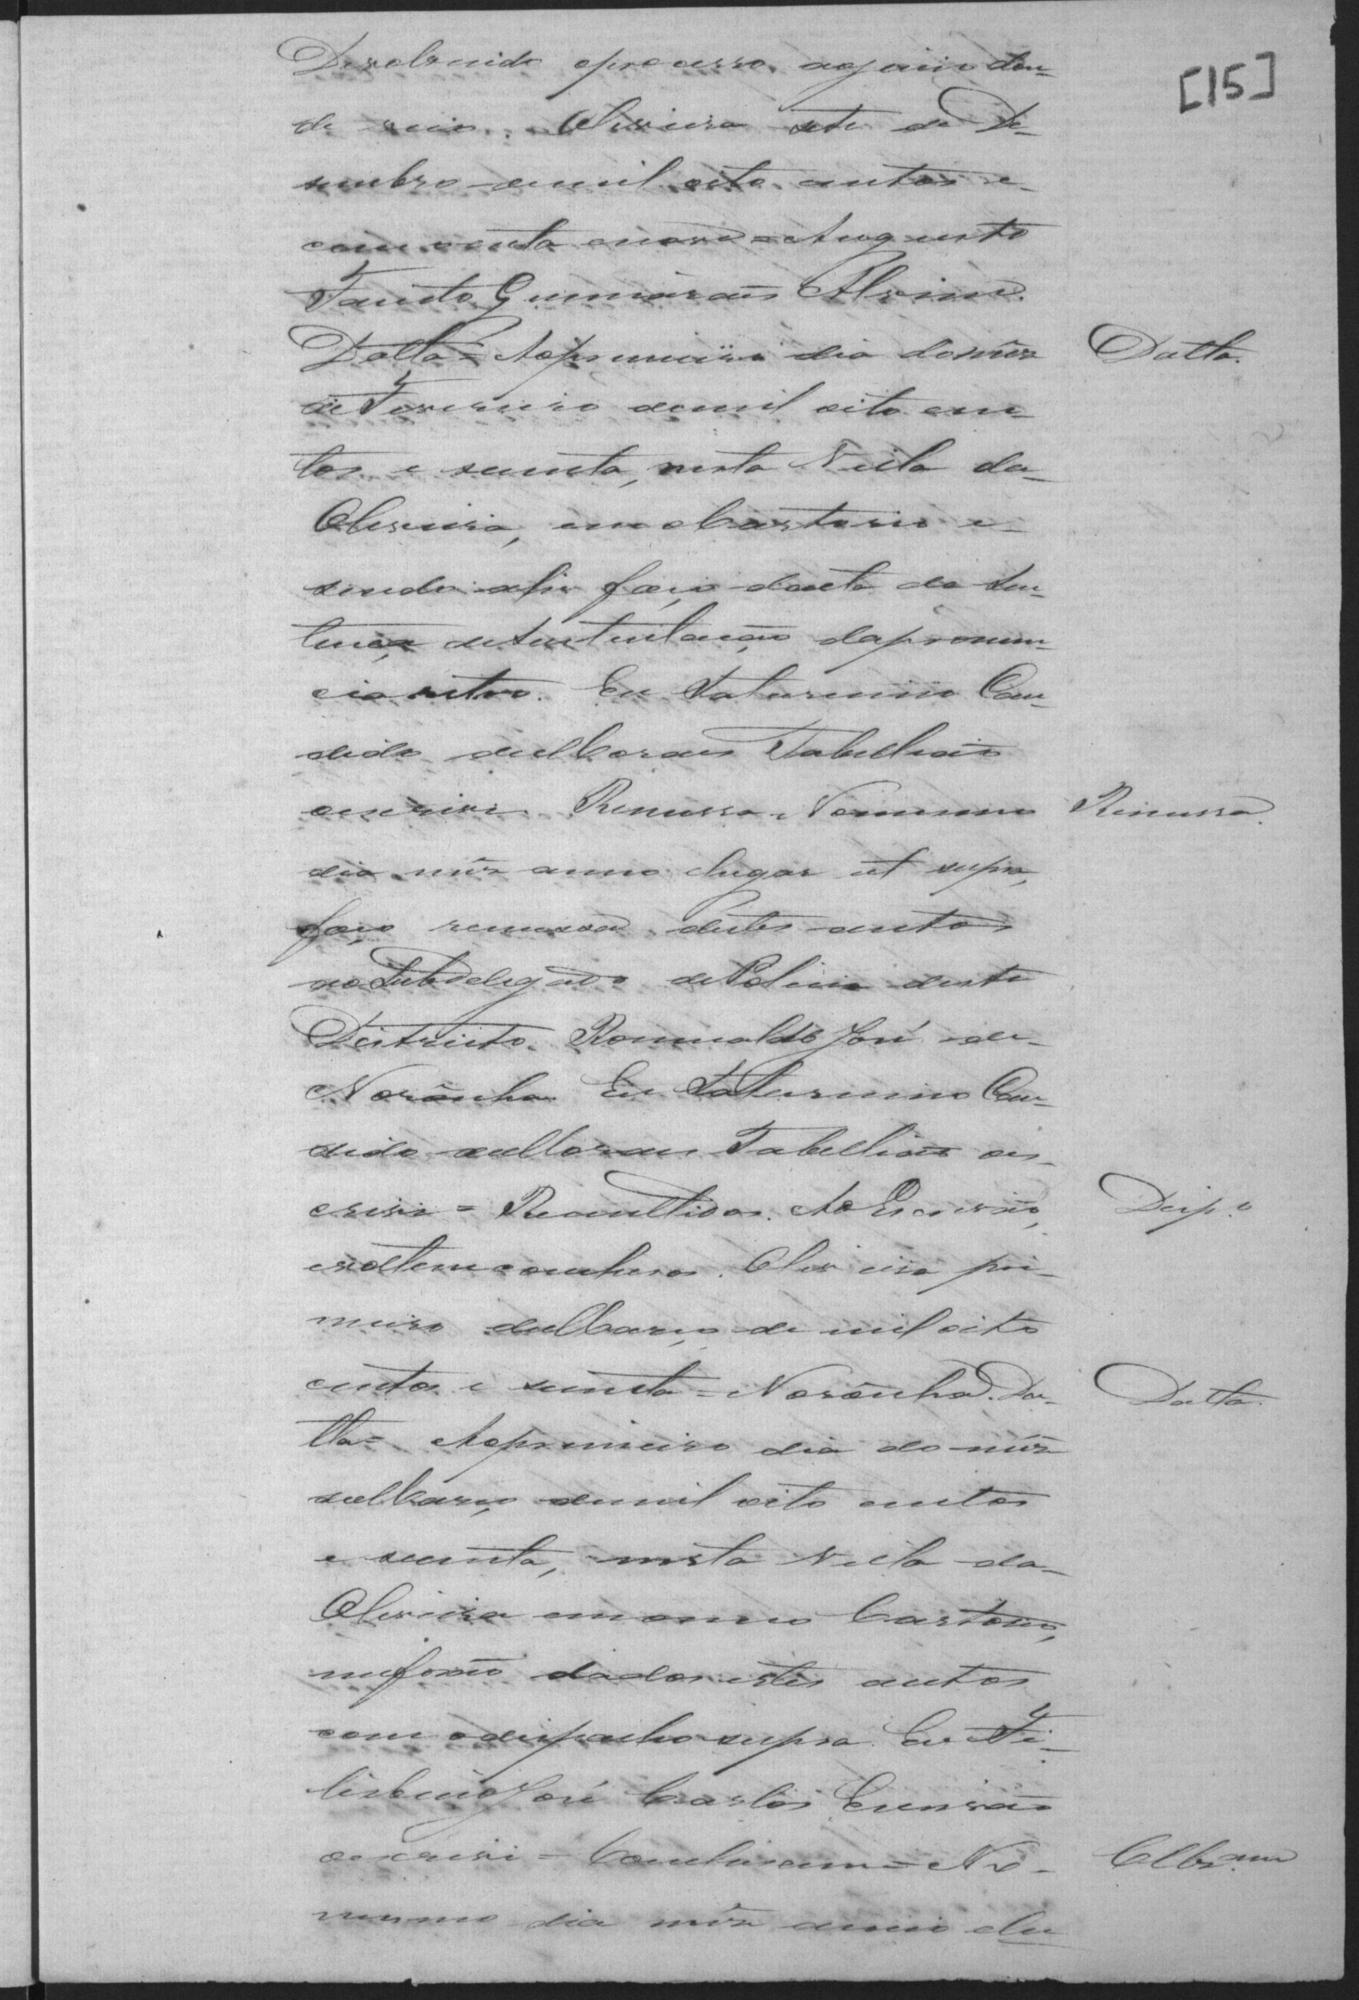 [15]
Devolvendo o processo aojuiz don-
de veio. Oliveira sete de De-
sembro demil oito centos e
cincoenta enove = Augusto
Fausto Guimarães Alvim.
Datta = Aoprimeiro dia domês
Datta.
de Fevereiro demil oito cen
tos e secenta, nesta Villa da
Oliveira, emoCartorio e
sendo ahi faço daeta da Sen-
tença deSustentação dapronun-
cia retro. Eu Saturnino Can-
dido deMoraes Tabellião
oescrivi. Remessa. Nomesmo
Remessa.
dia mês anno elugar ut supra,
faço remessa destes autos
aoSubdelegado dePolicia deste
Districto Romualdo José de
Noronha Eu Saturnino Can-
dido deMoraes Tabellião oes-
crivi = Remettidos. Ao Escrivão,
Desp.o
evoltem conclusos. Oliveira pri-
meiro deMarço de mil oito
centos e secenta = Noronha. Da-
Datta.
tta = Aoprimeiro dia do mês
deMarço demil oito centos
e secenta, nesta Villa da
Oliveira emomeo Cartorio,
meforão dados estes autos
com odespacho supra. Eu Fe-
José Carlos Escrivão
oescrivi = Conclusam = No
Cllsam
mesmo dia mês anno elu